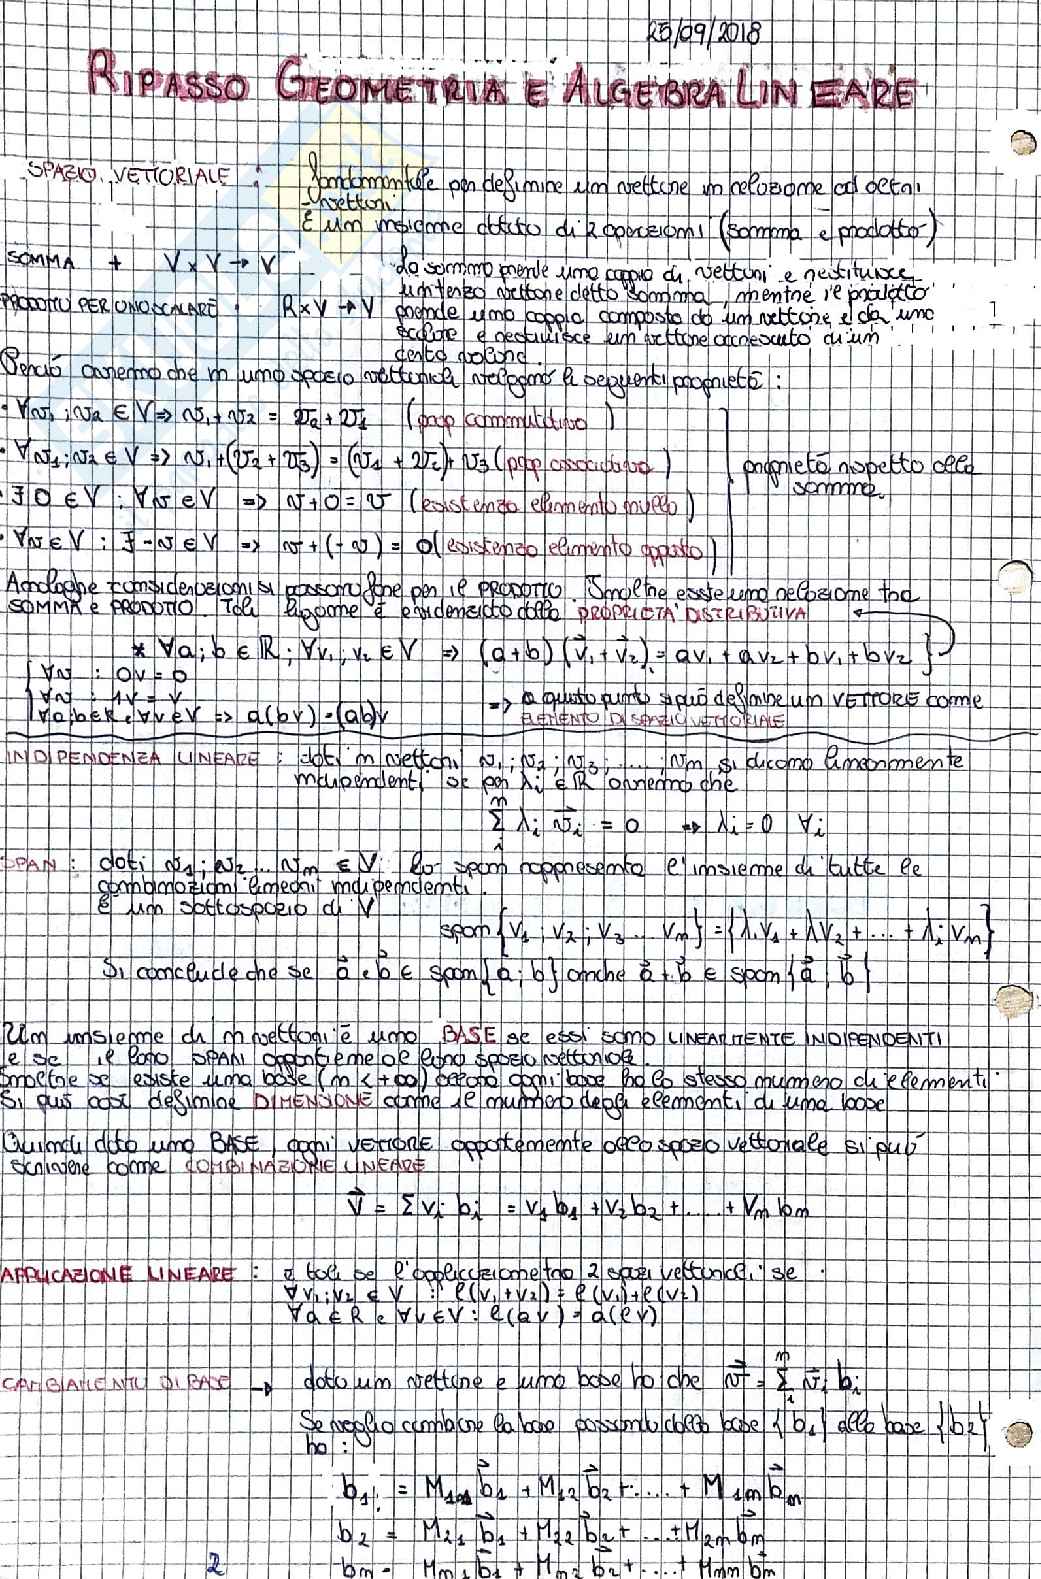 25/09/2018
RIPASSO GEOMETRIA E ALGEBRA LINEARE
SPAZIO VETTORIALE : fondamentale per definire un vettore in relazione ad altri
vettori
È un insieme dotato di 2 operazioni (somma e prodotto)
SOMMA + V x V → V La somma prende una coppia di vettori e restituisce
un terzo vettore detto somma, mentre il prodotto
PRODOTTO PER UNO SCALARE · R x V → V prende una coppia composta da un vettore e da uno
scalare e restituisce un vettore accresciuto di un
certo valore.
Perciò avremo che in uno spazio vettoriale valgono le seguenti proprietà :
· ∀v₁ ; v₂ ∈ V ⇒ v₁ + v₂ = v₂ + v₁ (prop commutativa)
· ∀v₁ ; v₂ ∈ V ⇒ v₁ + (v₂ + v₃) = (v₁ + v₂) + v₃ (prop associativa)
proprietà rispetto alla
somma
· ∃ 0 ∈ V : ∀v ∈ V ⇒ v + 0 = v (esistenza elemento nullo)
· ∀v ∈ V : ∃ -v ∈ V ⇒ v + (-v) = 0 (esistenza elemento opposto)
Analoghe considerazioni si possono fare per il PRODOTTO. Inoltre esiste una relazione tra
SOMMA e PRODOTTO. Tale legame è evidenziato dalla PROPRIETÀ DISTRIBUTIVA
* ∀a ; b ∈ ℝ ; ∀v₁ ; v₂ ∈ V ⇒ (a+b)(v⃗₁ + v⃗₂) = av₁ + av₂ + bv₁ + bv₂
∀v : 0v = 0
∀v : 1v = v
∀a;b∈R e ∀v∈V ⇒ a(bv) = (ab)v
⇒ a questo punto si può definire un VETTORE come
ELEMENTO DI SPAZIO VETTORIALE
INDIPENDENZA LINEARE : dati n vettori v₁ ; v₂ ; v₃ ; .... ; vn si dicono linearmente
indipendenti se per λi ∈ ℝ avremo che
n
Σ λi v⃗i = 0 ⇒ λi = 0 ∀i
i
SPAN : dati v₁ ; v₂ ... vn ∈ V lo span rappresenta l'insieme di tutte le
combinazioni lineari indipendenti.
È un sottospazio di V
span{v₁ ; v₂ ; v₃ ... vn} = {λ₁v₁ + λv₂ + ... + λi vn}
Si conclude che se a⃗ e b⃗ ∈ span{a ; b} anche a⃗ + b⃗ ∈ span{a⃗ ; b⃗}
Un insieme di n vettori è una BASE se essi sono LINEARMENTE INDIPENDENTI
e se il loro SPAN appartiene al loro spazio vettoriale.
Inoltre se esiste una base (n < +∞) allora ogni base ha lo stesso numero di elementi.
Si può così definire DIMENSIONE come il numero degli elementi di una base
Quindi dato una BASE, ogni VETTORE appartenente allo spazio vettoriale si può
scrivere come COMBINAZIONE LINEARE
V⃗ = Σ vi bi = v₁b₁ + v₂b₂ + .... + vn bn
APPLICAZIONE LINEARE : è tale se l'applicazione tra 2 spazi vettoriali se
∀v₁ ; v₂ ∈ V : l(v₁ + v₂) = l(v₁) + l(v₂)
∀a ∈ R e ∀v ∈ V : l(av) = a(lv)
CAMBIAMENTO DI BASE → dato un vettore e una base ho che v⃗ = Σ v⃗i bi
n
i
Se voglio cambiare la base passando dalla base {b₁} alla base {b₂}
ho :
b₁ = M₁₁ b⃗₁ + M₁₂ b⃗₂ + .... + M₁n b⃗n
b₂ = M₂₁ b⃗₁ + M₂₂ b⃗₂ + ... + M₂n b⃗n
bn = Mn₁ b⃗₁ + Mn₂ b⃗₂ + .... + Mnn b⃗n
2